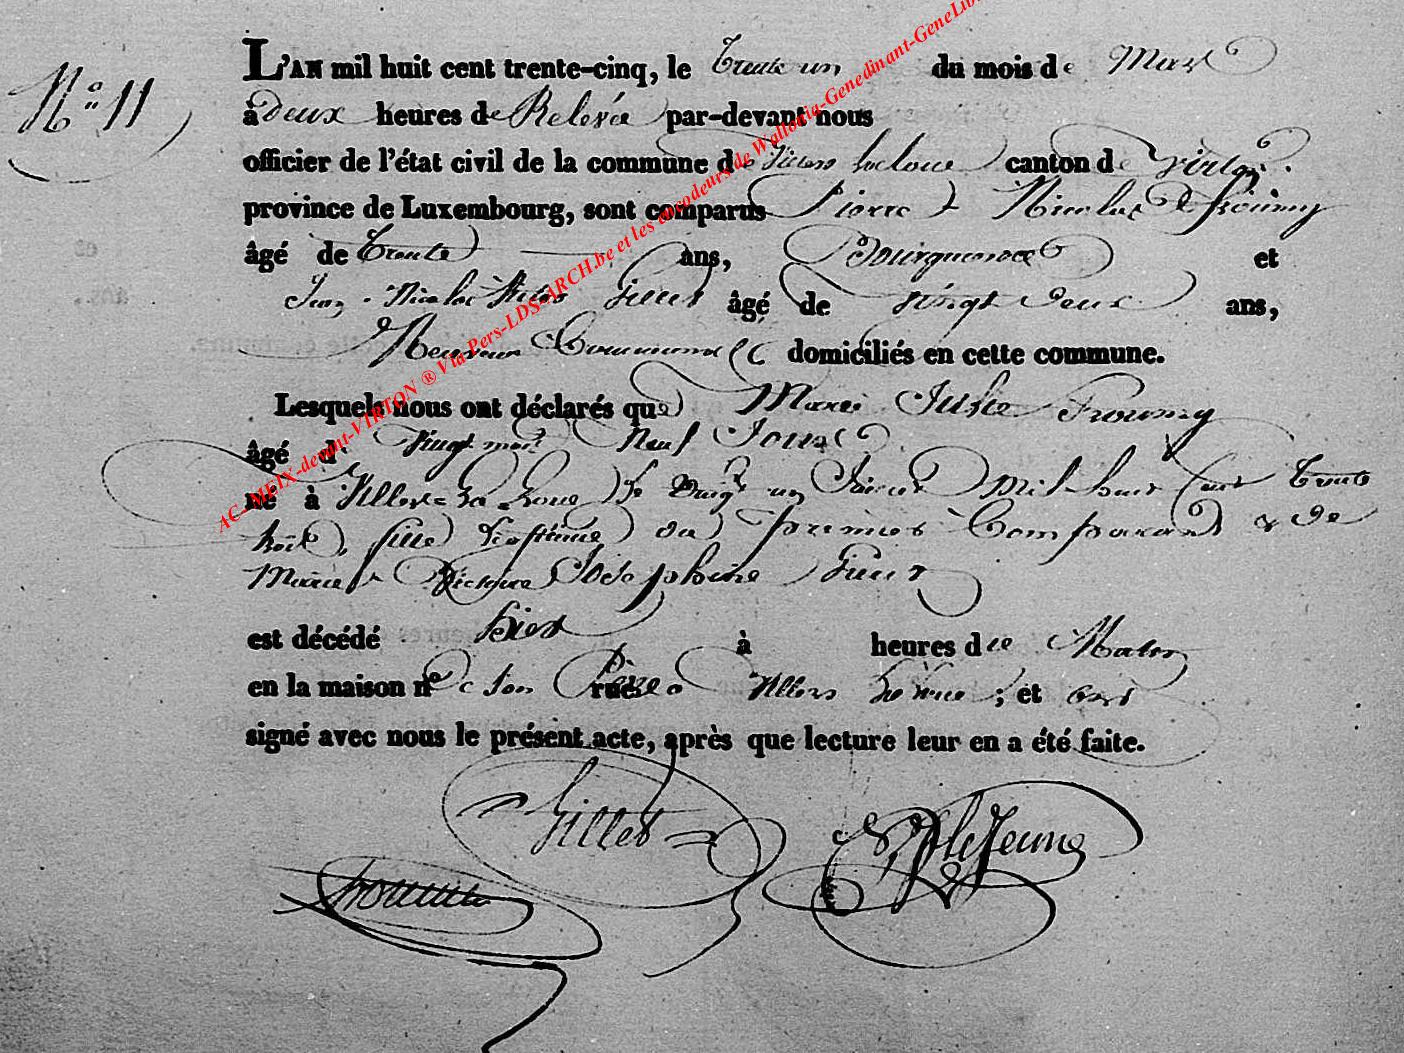 N.º 11
L'AN mil huit cent trente-cinq, le Trente un du mois de Mars
à deux heures de Relevée par-devant nous
officier de l'état civil de la commune de Villers laloue canton de Virton.
province de Luxembourg, sont comparus Pierre Nicolas Froumy
âgé de Trente ans, et
Jean Nicolas Gillet âgé de vingt deux ans,
domiciliés en cette commune.
Lesquels nous ont déclarés que Marie Julie Froumy
âgé d Vingt Neuf Jours
né à Villers-La-Loue Le Vingt un Mil huit Cent Trente
fille légitime du premier Comparant & de
Marie Victoire Josephine
est décédé hier à heures de Matin
en la maison nº de son Père rue a Villers La loue ; et ont
signé avec nous le présent acte, après que lecture leur en a été faite.
Gillet
Lejeune
AC-MEIX-devant-VIRTON ® Via Pers-LDS-ARCH.be et les encodeurs de Wallonia-Genedinant-GeneLib